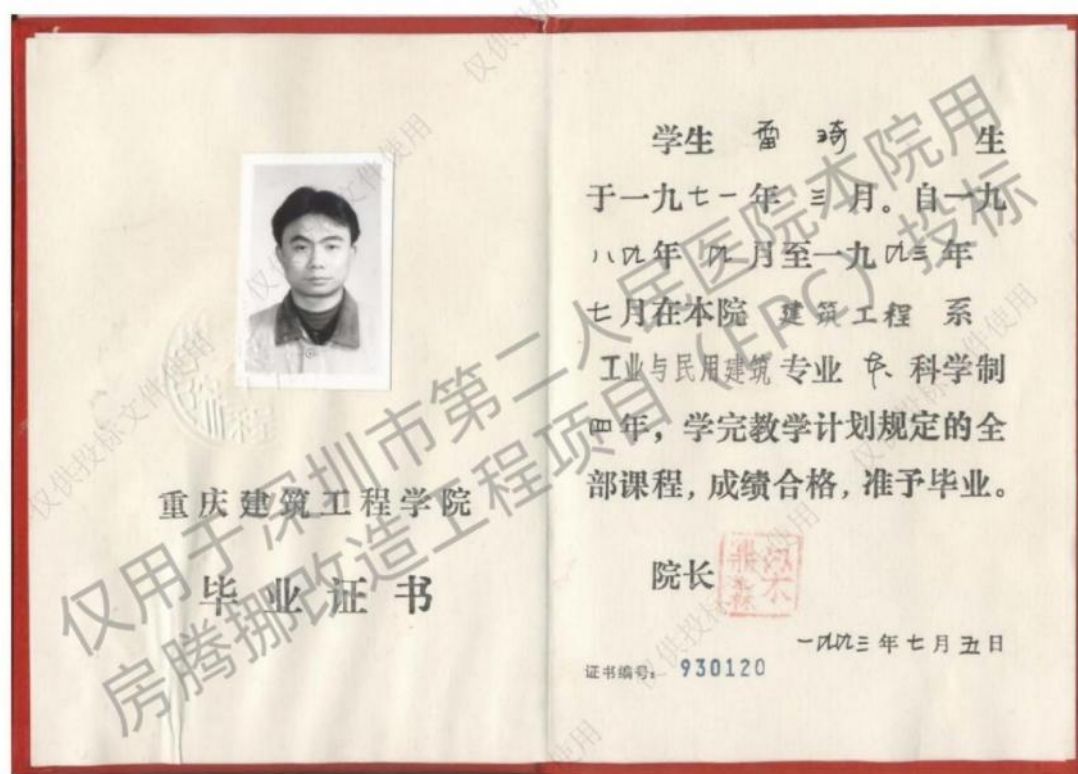 重庆建筑工程学院
毕业证书
学生 雷琦 生
于一九七一年三月。自一九
八九年九月至一九九三年
七月在本院 建筑工程 系
工业与民用建筑 专业 本 科学制
四年，学完教学计划规定的全
部课程，成绩合格，准予毕业。
院长
一九九三年七月五日
证书编号：930120
仅用于深圳市第二人民医院本院用
房腾挪改造工程项目（EPC）投标
仅供投标文件使用